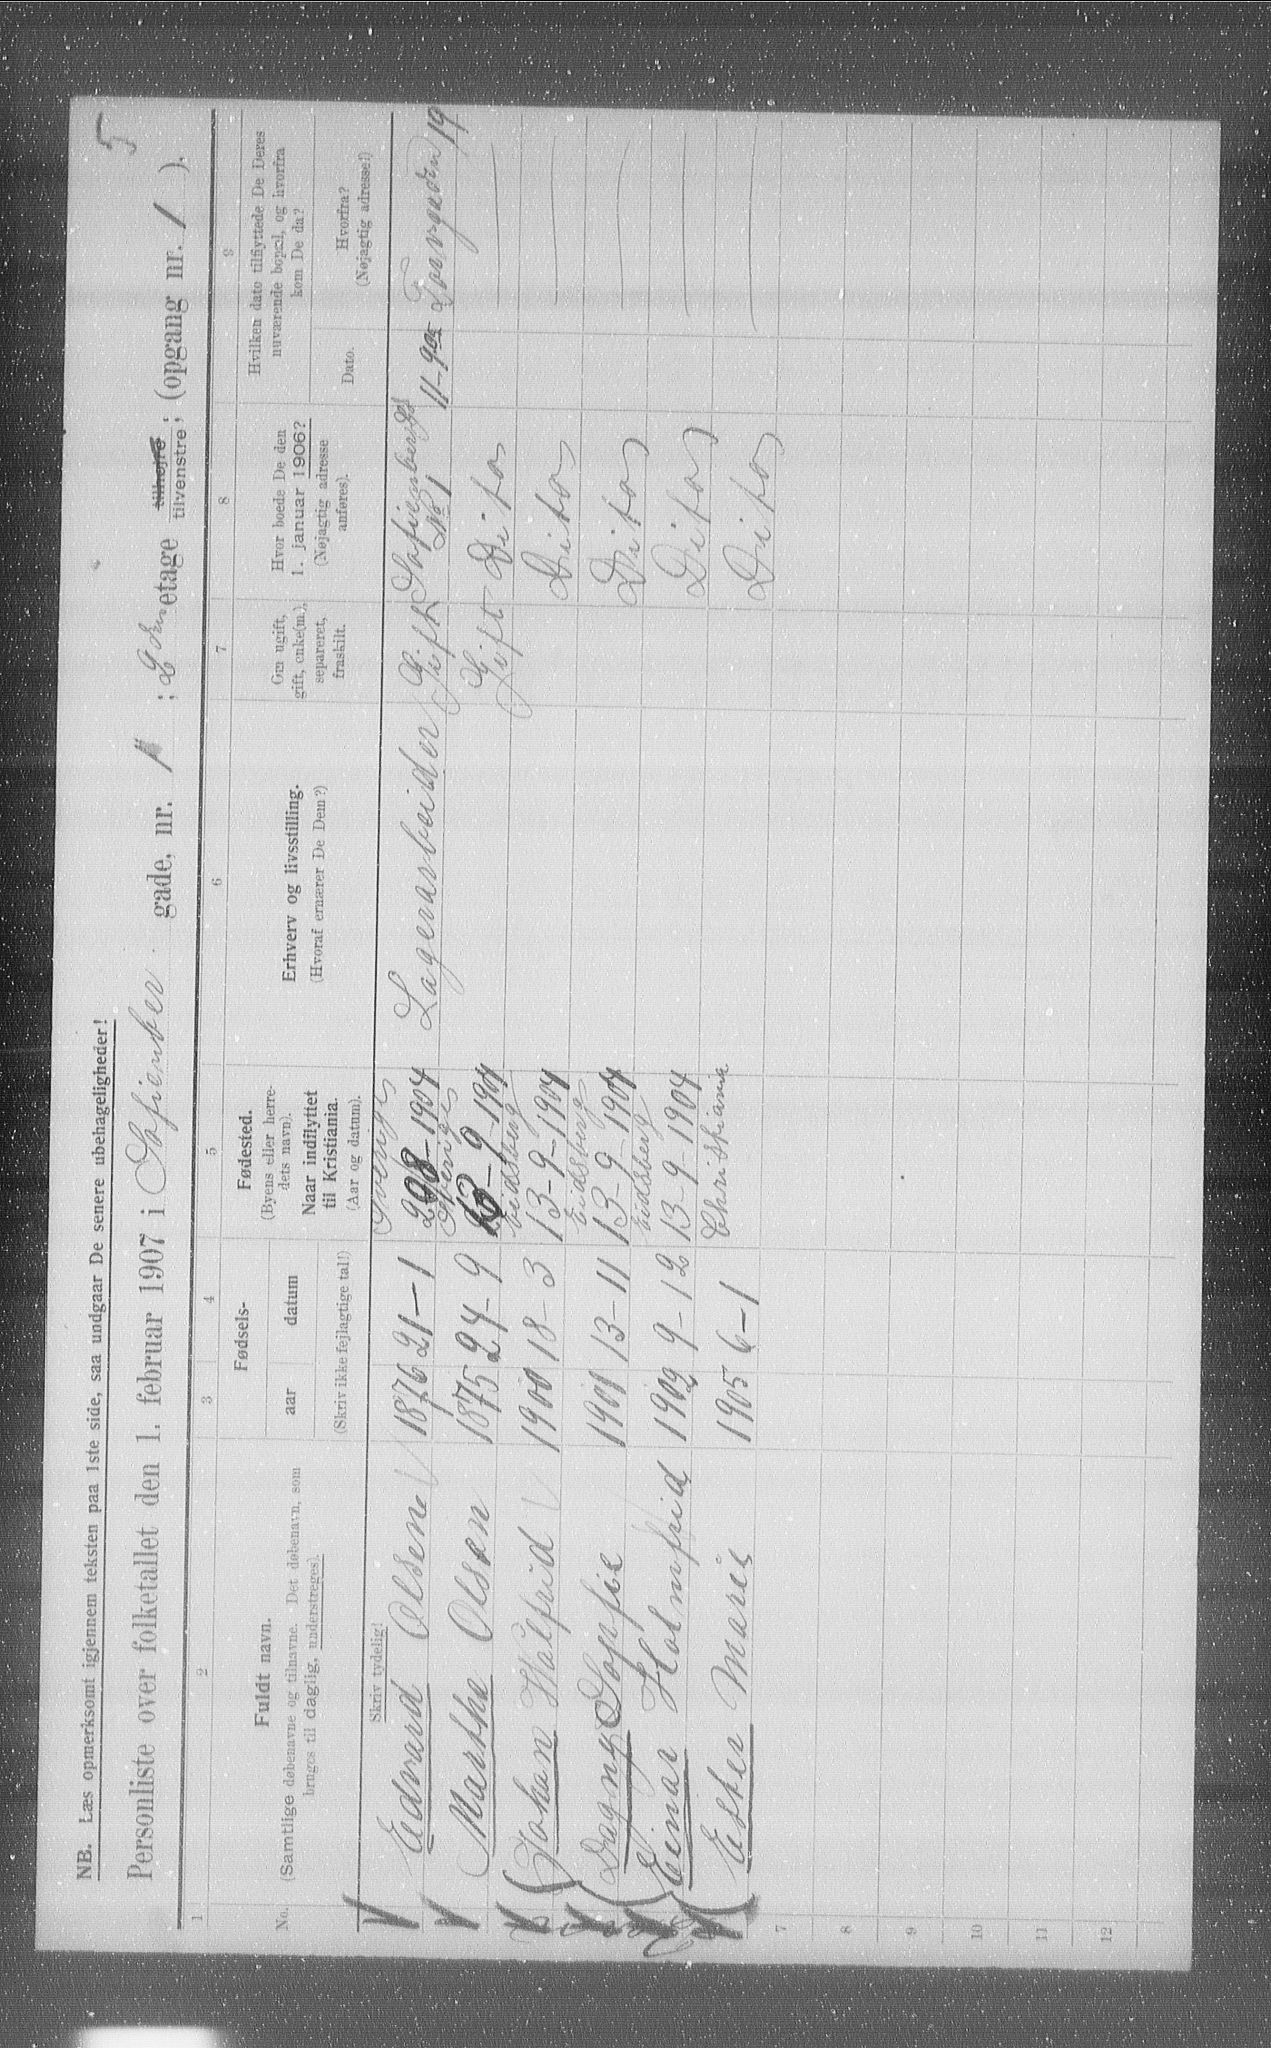 5
NB. Læs opmerksomt igjennem teksten paa 1ste side, saa undgaar De senere ubehageligheder!
Personliste over folketallet den 1. februar 1907 i Sofienber gade, nr. 1 ; 2den etage tilhøjre tilvenstre ; (opgang nr. 1 ).
1 2 3 4 5 6 7 8 9
No.
Fuldt navn.
(Samtlige døbenavne og tilnavne. Det døbenavn, som
bruges til daglig, understreges).
Fødsels-
aar datum
(Skriv ikke fejlagtige tal!)
Fødested.
(Byens eller herre-
dets navn).
Naar indflyttet
til Kristiania.
(Aar og datum).
Erhverv og livsstilling.
(Hvoraf ernærer De Dem?)
Om ugift,
gift, enke(m.),
separeret,
fraskilt.
Hvor boede De den
1. januar 1906?
(Nøjagtig adresse
anføres).
Hvilken dato tilflyttede De Deres
nuværende bopæl, og hvorfra
kom De da?
Dato.
Hvorfra?
(Nøjagtig adresse!)
Skriv tydelig!
Edvard Olsen 1876 21-1 Sverige 1904 Lagerarbeider Gift Sofienbergd No 1 11-9 19
Marthe Olsen 1875 24-9 Sverige 13-9-1904 Gift Ditos
Johan Halfrid 1900 18-3 Eidsberg 13-9-1904 Ditos
Dagny Sopfie 1901 13-11 Eidsberg 13-9-1904 Ditos
Einar Holmfrid 1902 9-12 Eidsberg 13-9-1904 Ditos
Ester Marie 1905 6-1 Christiania Ditos
7
8
9
10
11
12